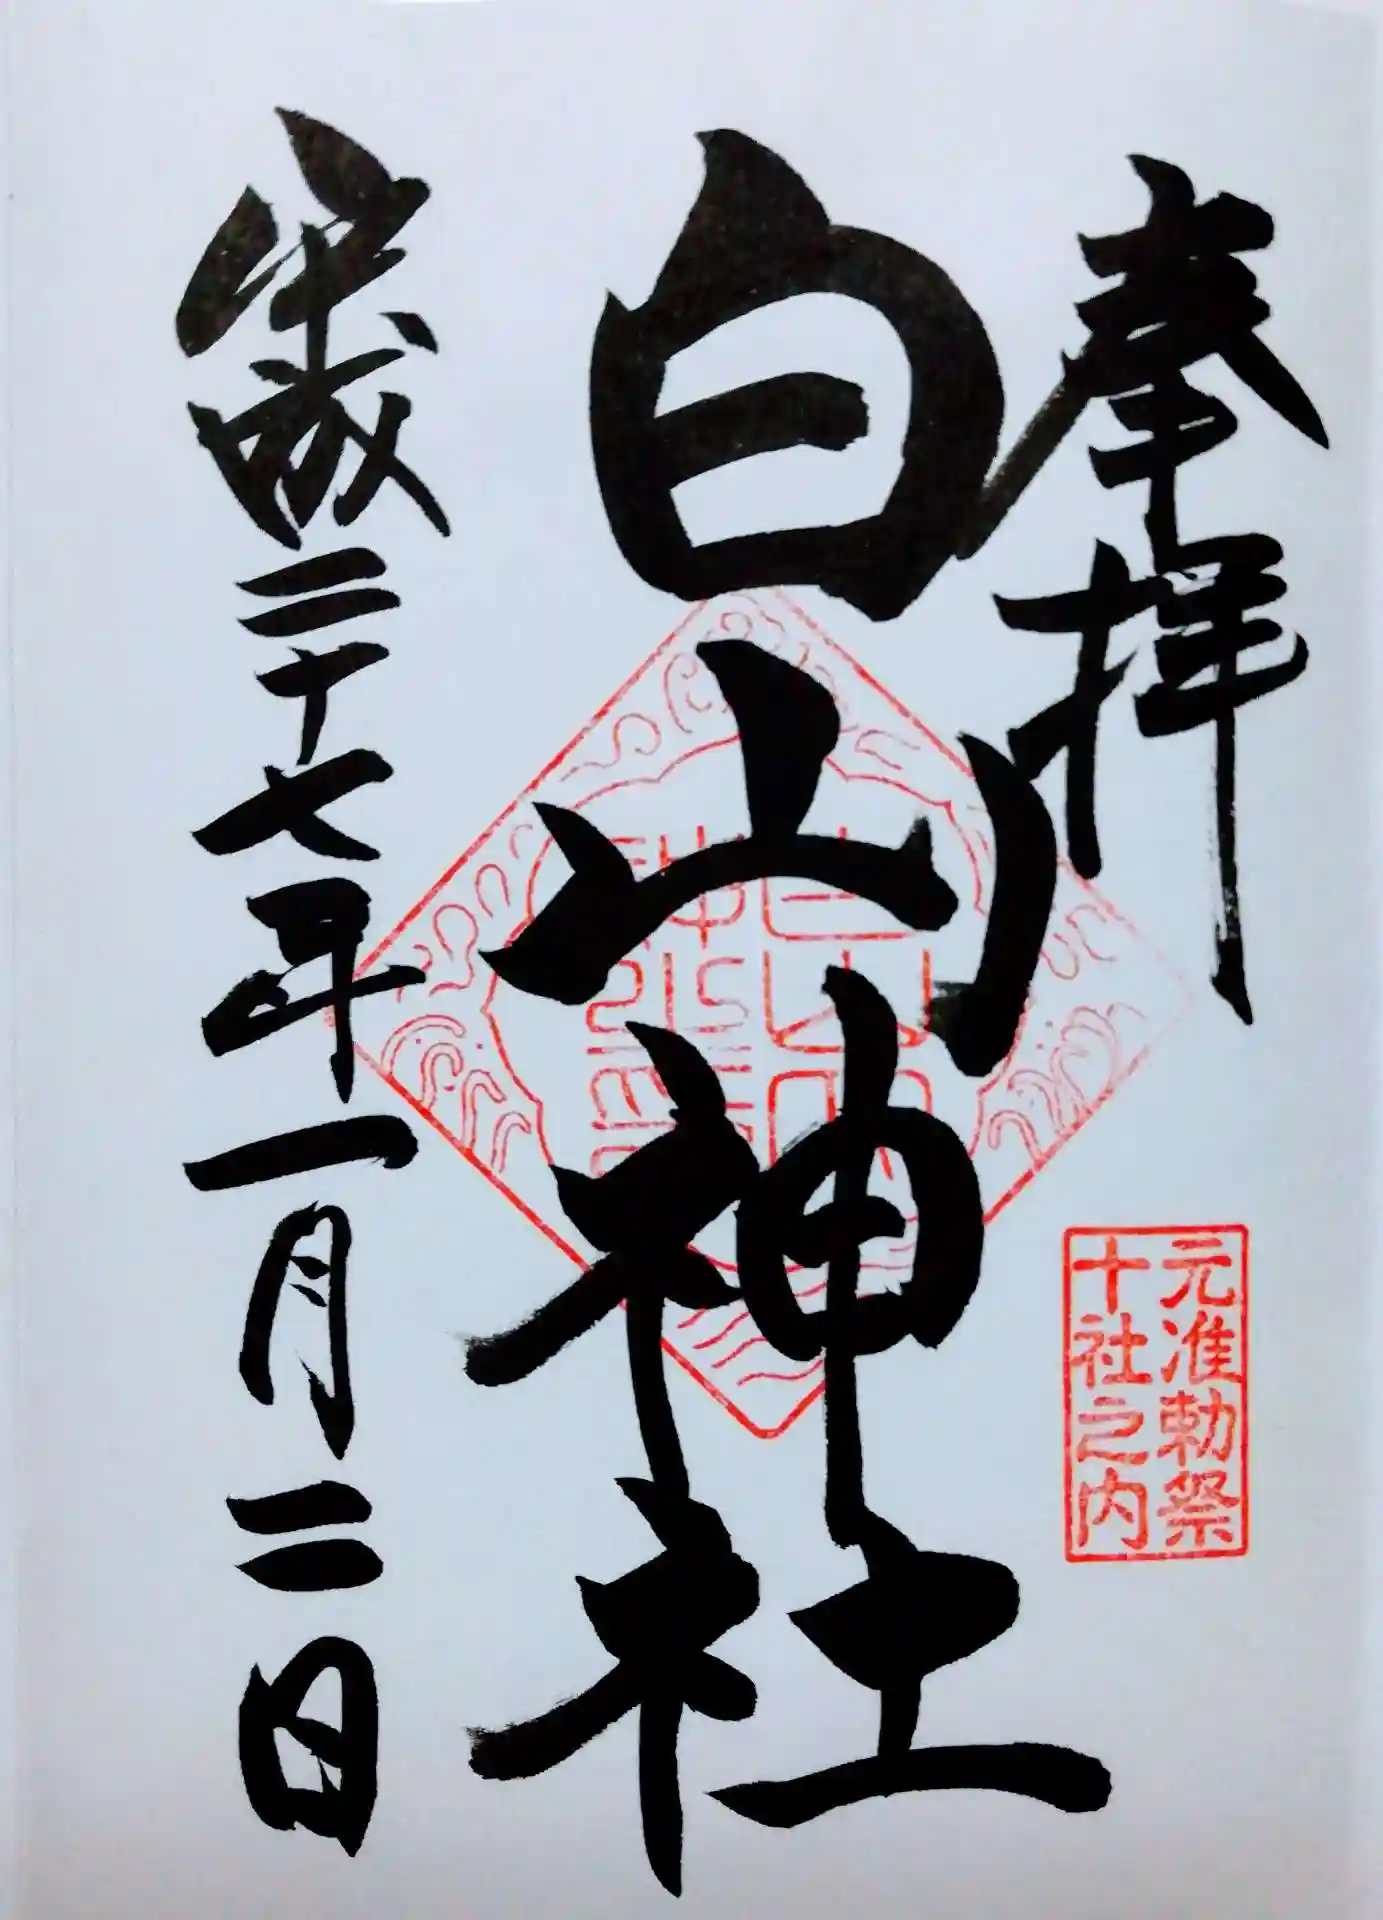 奉拝
白山神社
平成二十七年一月二日
元准勅祭
十社之内